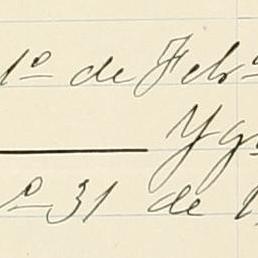 1º de Febº
Yg
º 31 de